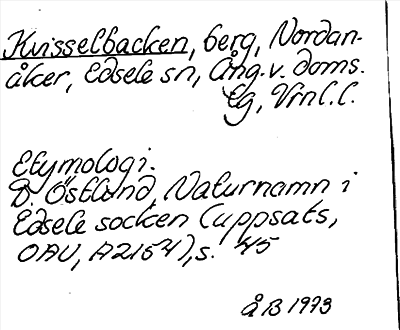 Kvisselbacken, berg, Nordan-
åker, Edsele sn, Ång. v. doms.
lg, Vrnl. l.
Etymologi.
D. Östlund, Naturnamn i
Edsele socken (uppsats,
OAU, A2154), s. 45
ÅB 1973